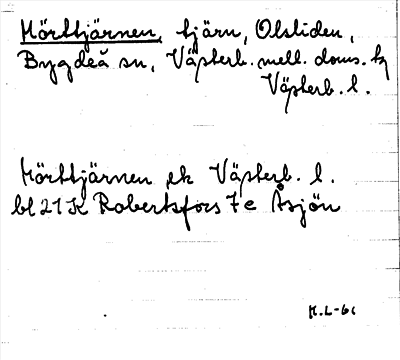 Mörttjärnen, tjärn, Olsliden,
Bygdeå sn, Västerb. mell. doms. tg
Västerb. l.
Mörttjärnen ek Västerb. l.
bl 21 K Robertsfors 7 e Åsjön
K.L-61